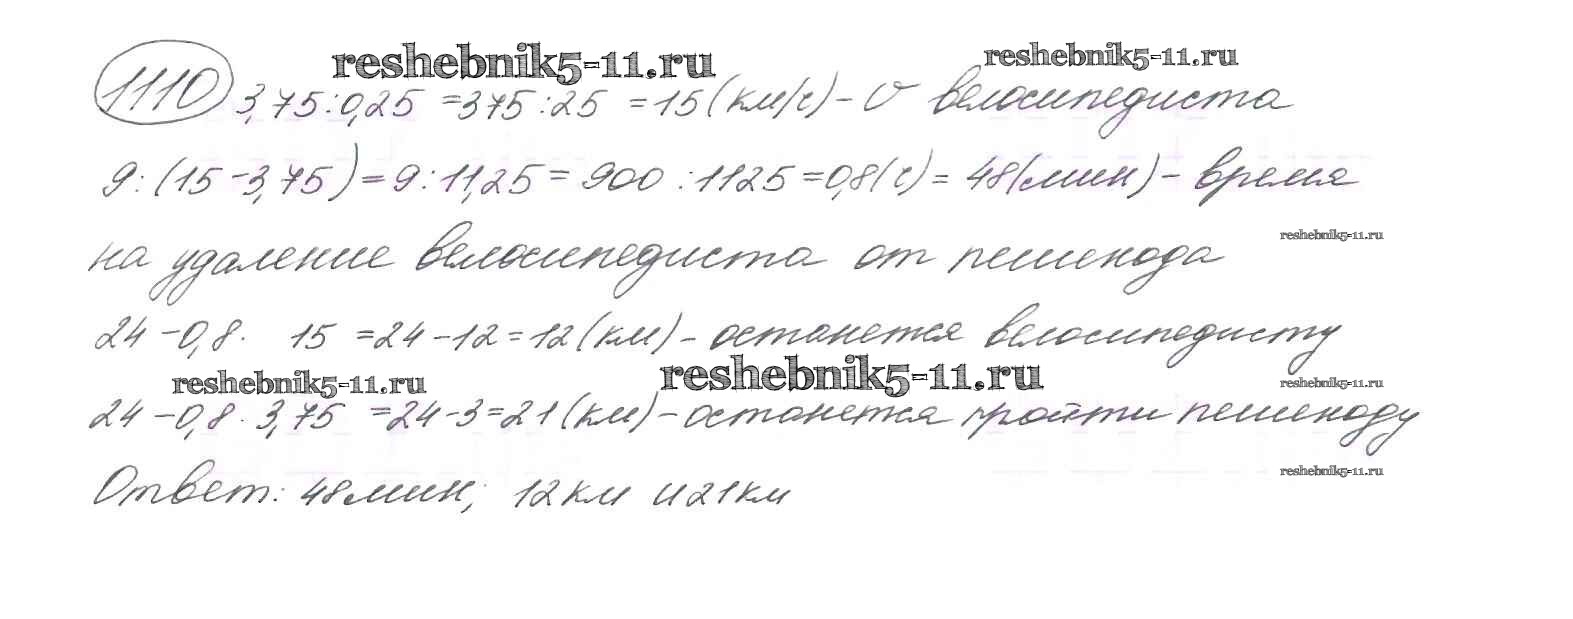 reshebnik5-11.ru reshebnik5-11.ru
1110 3,75:0,25 =375:25 =15(км/ч)-V велосипедиста
9:(15-3,75)=9:11,25=900:1125=0,8(ч)=48(мин)-время
reshebnik5-11.ru
на удаление велосипедиста от пешехода
24-0,8· 15 =24-12=12(км)-останется велосипедисту
reshebnik5-11.ru reshebnik5-11.ru reshebnik5-11.ru
24-0,8·3,75 =24-3=21(км)-останется пройти пешеходу
reshebnik5-11.ru
Ответ: 48мин; 12км и 21км